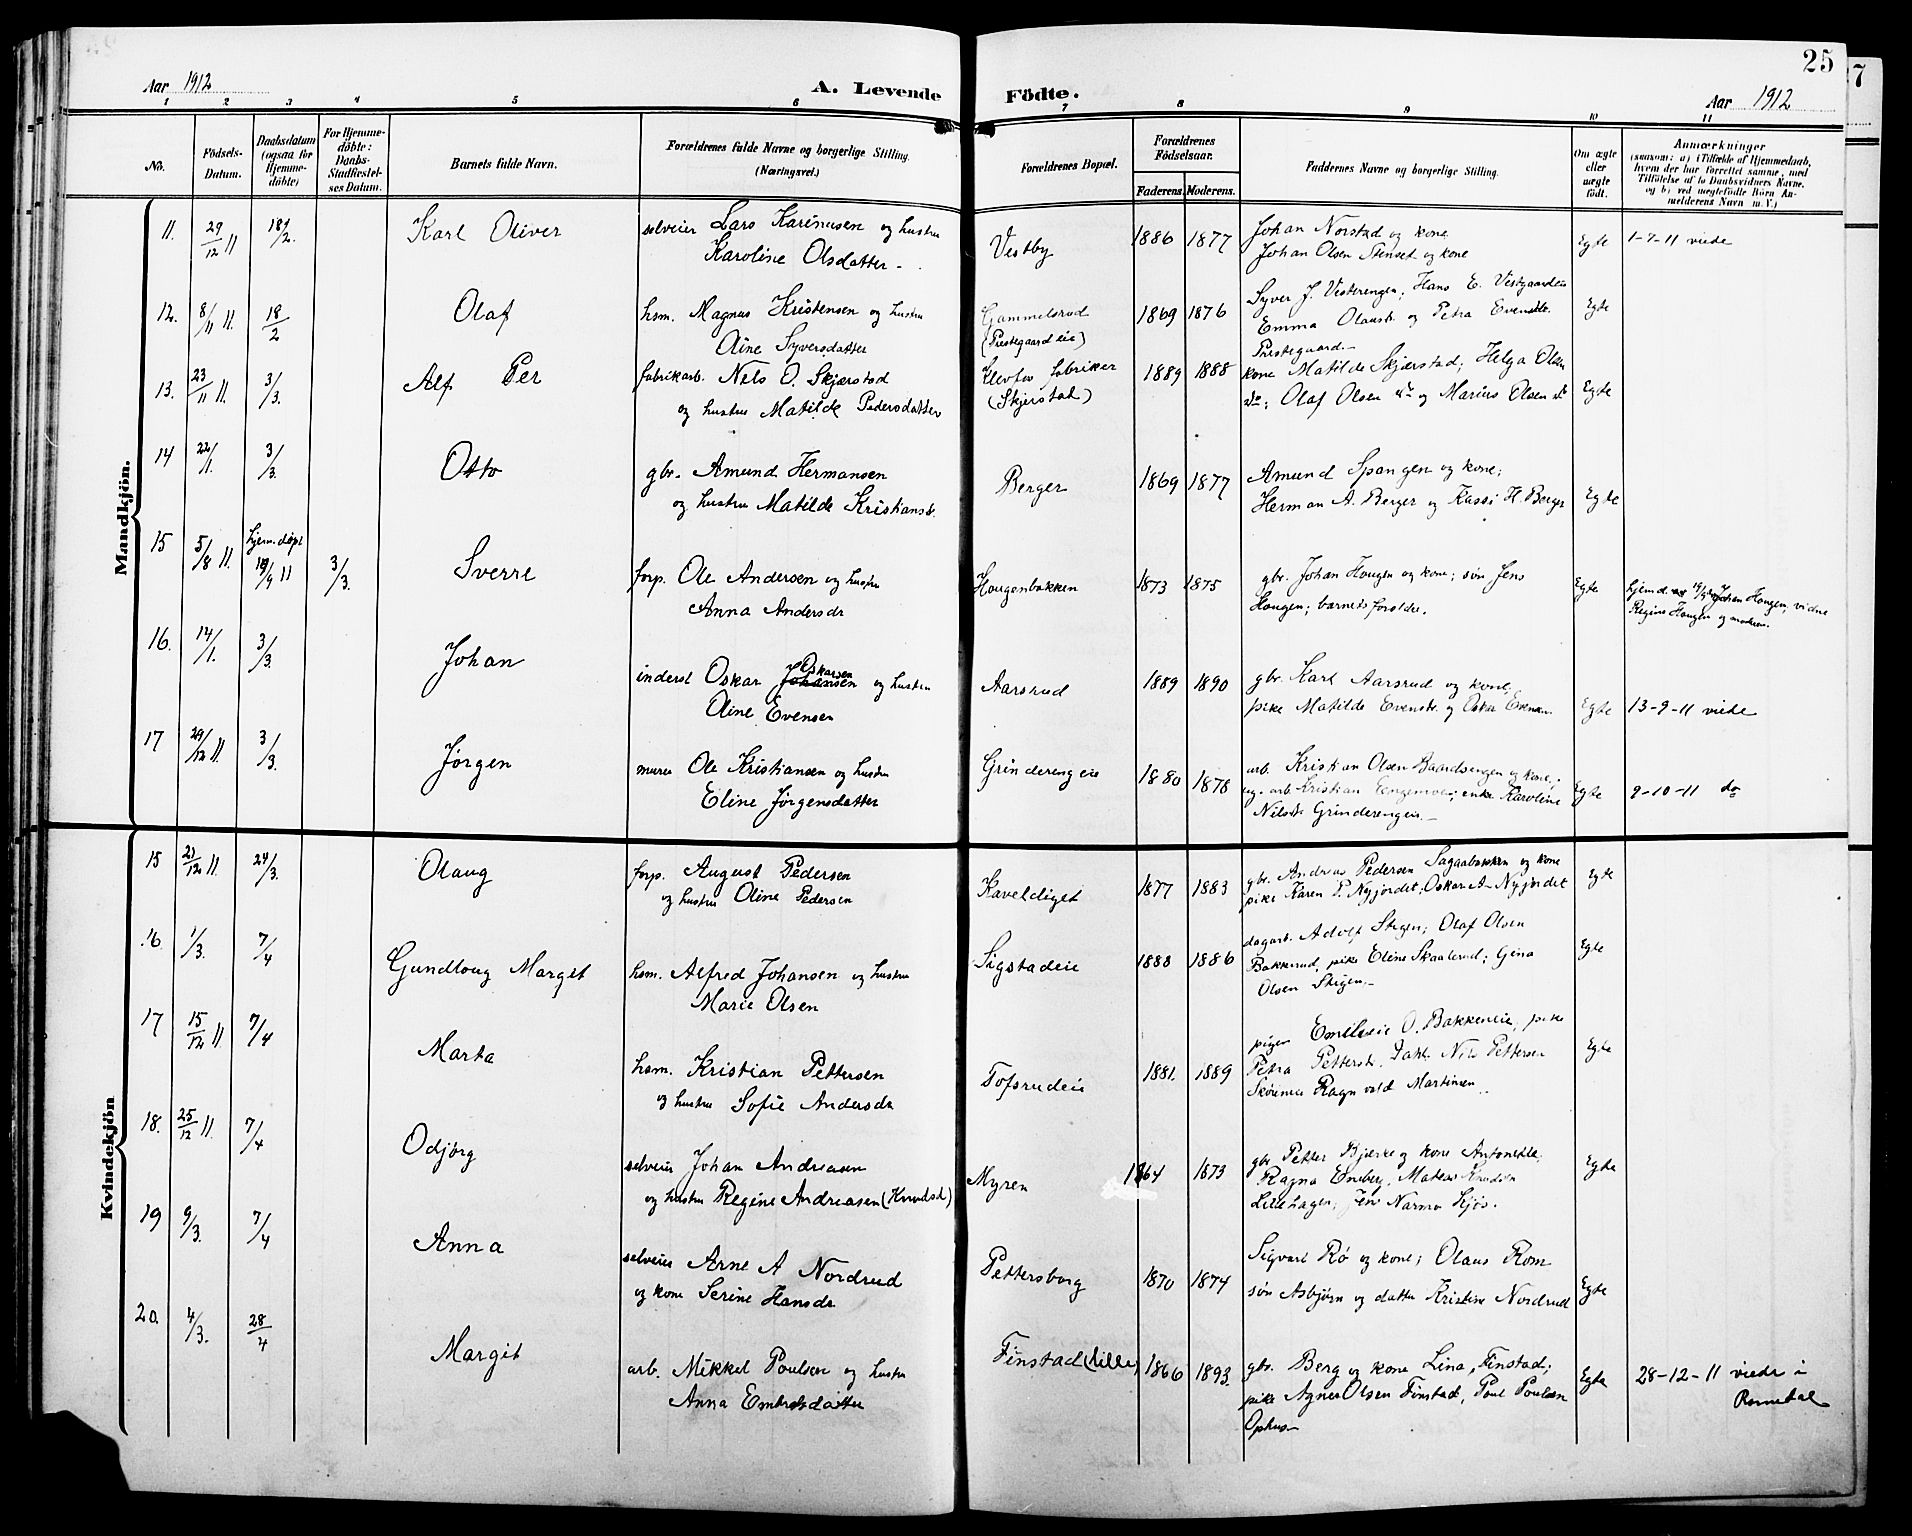 25
7
Aar 1912
A. Levende Födte.
Aar 1912
1 2 3 4 5 6 7 8 9 10 11
No.
Födsels-Datum.
Daabsdatum (ogsaa for Hjemme-döbte)
For Hjemme-döbte: Daabs-Stadfæstel-ses Datum.
Barnets fulde Navn.
Forældrenes fulde Navne og borgerlige Stilling. (Næringsvei.)
Forældrenes Bopæl.
Forældrenes Födselsaar.
Faderens. Moderens.
Faddernes Navne og borgerlige Stilling.
Om ægte eller uægte födt.
Anmærkninger
(saasom: a) i Tilfælde af Hjemmedaab,
hvem der har forrettet samme, med
Tilföielse af to Daabsvidners Navne,
og b) ved uægtefödte Börn An-
melderens Navn m. V.)
Mandkjön.
11. 29/12 11 18/2. Karl Oliver selveier Lars Karinusen og hustru
Karoline Olsdatter -
Vestby 1886 1877 Johan Norstad og kone
Johan Olsen Stenset og kone
Egte 1-7-11 viede
12. 8/11 11. 18/2 Olaf hsm. Magnus Kristensen og hustru
Oline Syversdatter
Gammelsrud
(Prestegaard eie)
1869 1876 Syver J. Vesterengen; Hans E. Vestgaardeie
Emma Olausdr. og Petra Evensdtr.
Prestegaard.-
Egte
13. 23/11 11. 3/3. Alf Per fabrikarb. Nils O. Skjærstad
og hustru Matilde Pedersdatter
Klevfos fabriker
(Skjerstad)
1889 1888 kone Matilde Skjærstad; Helga Olsen
do; Olaf Olsen do og Marius Olsen do
Egte
14 22/1. 3/3. Otto gbr. Amund Hermansen
og hustru Matilde Kristiansdr.
Berger 1869 1877 Amund Spangen og kone;
Herman A. Berger og Kassi H. Berger
Egte
15 5/8 11. hjem.døpt
19/9 11 3/3. Sverre forp. Ole Andersen og hustru
Anna Andersdr
Hougenbakken 1873 1875 gbr. Johan Hougen og kone; søn Jens
Hougen; barnets foreldre.
Egte hjemd. 19/9 Johan Hougen, vidne
Regine Hougen og moderen.
16. 14/1. 3/3. Johan inderst Oskar Johansen Oskarsen og hustru
Oline Evensen
Aarsrud 1889 1890 gbr. Karl Aarsrud og kone,
pike Matilde Evensdr. og Oskar Evensen
Egte 13-9-11 viede
17 29/12 11. 3/3. Jørgen murer Ole Kristiansen og hustru
Eline Jørgensdatter
Grinderengeie 1880 1878 arb. Kristian Olsen Baardsengen og kone,
ug. arb. Kristian Engemoen; enke Karoline
Nilsdr. Grinderengeie.-
Egte 9-10-11 do
Kvindekjön
15 21/12 11. 24/3. Olaug forp. August Pedersen
og hustru Oline Pedersen
Kaveldiget 1877 1883 gbr. Andreas Pedersen Sagaabakken og kone
pike Karen P. Nyjordet; Oskar A. Nyjordet
Egte
16. 1/3. 7/4 Gundloug Margit hsm. Alfred Johansen og hustru
Marie Olsen
Sigstadeie 1888 1886 dagarb. Adolf Stigen; Olaf Olsen
Bakkerud, pike Eline Skaalerud; Gina
Olsen Stigen.-
Egte
17 15/12 11 7/4 Marta hsm. Kristian Pettersen
og hustru Sofie Andersdr
Tofsrudeie 1881. 1889 pigen O. Bakkeneie, pike
Petra Pettersdr. Nils Pettersen
Ragnvald Martinsen
Egte
18. 25/12 11. 7/4 Odjørg selveier Johan Andreasen
og hustru Regine Andreasen (Knudsd)
Myren 1864 1873 gbr. Petter Bjærke og kone Antonette,
Ragna Eneberg, Mateas Knudsen
Lillehagen; Jens Narmo
Egte
19 9/3. 7/4 Anna selveier Arne A Nordrud
og kone Serine Hansdr
Pettersborg 1870 1874 Sigvart Rø og kone; Olaus Rom
søn Asbjørn og datter Kristine Nordrud
Egte
20. 4/3. 28/4 Margit arb. Mikkel Poulsen og hustru
Anna Embretsdatter
Finstad (lille) 1866 1893. gbr. Berg og kone Lina, Finstad;
pike Agnes Olsen Finstad, Poul Poulsen
Ophus
Egte 28-12-11 viede i
Romedal